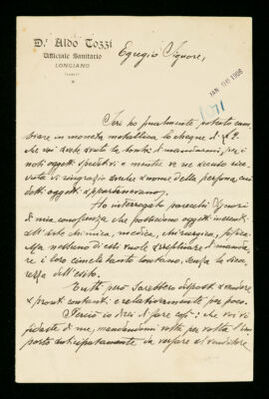 Dr. Aldo Tozzi
Ufficiale Sanitario
LONGIANO
Egregio Signore,
JAN 1908
171
Ieri ho finalmente potuto cam
biare in moneta metallica lo cheque di £ 2
che voi avete avuto la bontà di mandarmi, per i
noti oggetti speditivi e mentre ve ne accuso rice
vuta vi ringrazio anche a nome della persona cui
detti oggetti appartenevano.
Ho interrogato parecchi Signori
di mia conoscenza che posseggono oggetti inerenti
all'arte chimica, medica, chirurgica, fisica.
Ma nessuno di essi vuole arrischiare di manda
re i loro cimeli tanto lontano, senza la sicu
rezza dell'esito.
Tutti però sarebbero disposti a vendere
a pronti contanti e relativamente per poco.
Perciò io direi di fare così: che voi vi
fidaste di me, mandandomi volta per volta l'im
porto anticipatamente da versare al venditore